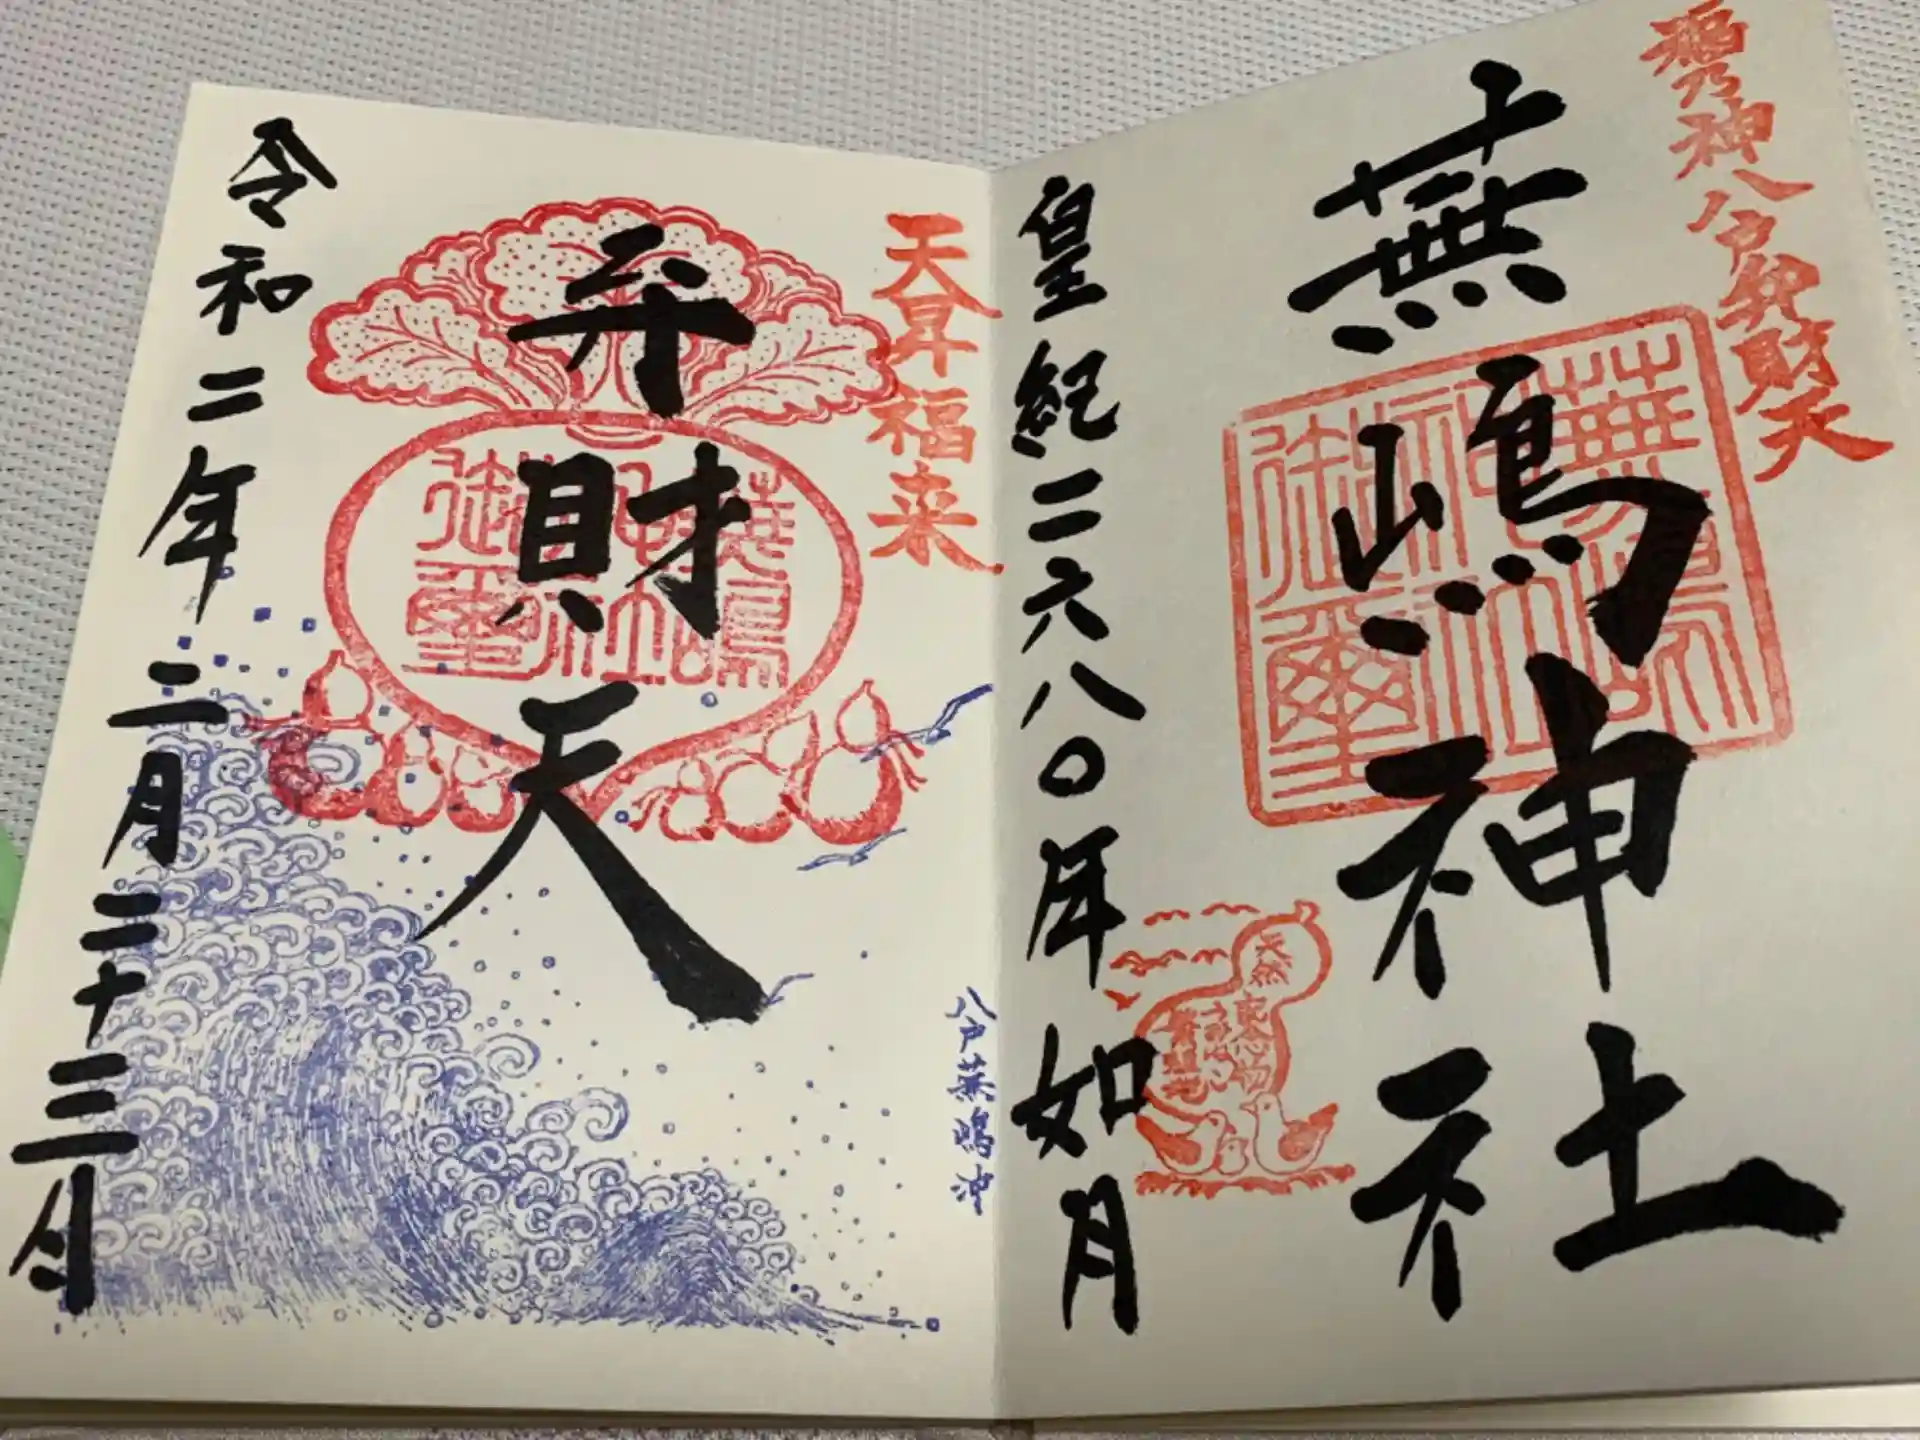 蕪嶋神社
八戸弁財天
皇紀二六八〇年如月
天昇福来
弁財天
八戸蕪嶋沖
令和二年二月二十三日
蕪嶋神社御璽
天然